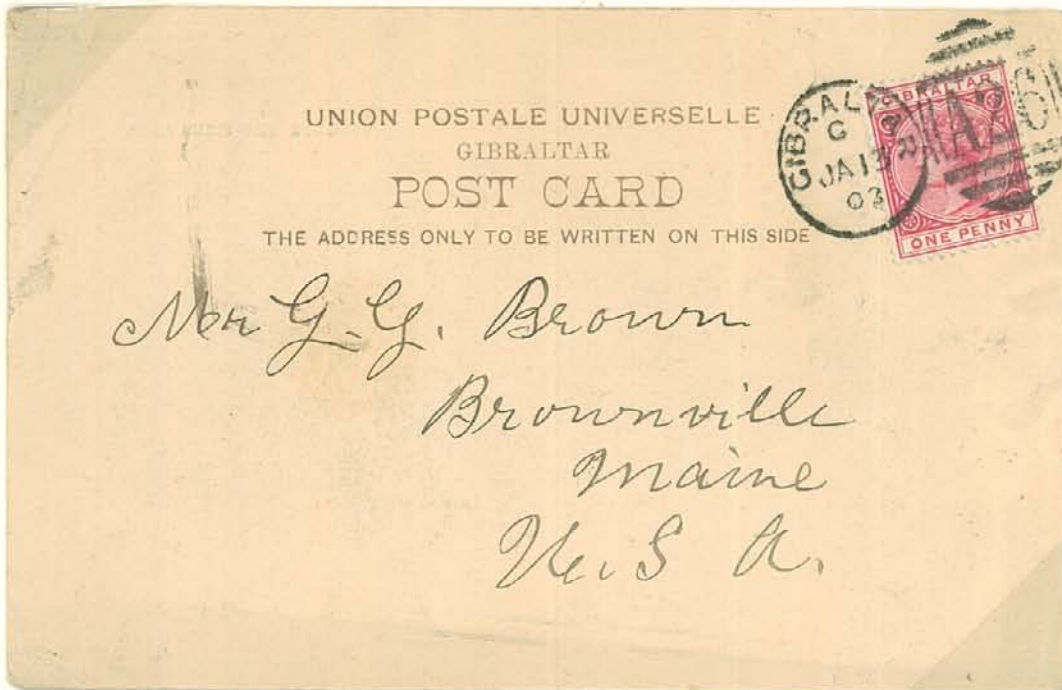 UNION POSTALE UNIVERSELLE
GIBRALTAR
POST CARD
THE ADDRESS ONLY TO BE WRITTEN ON THIS SIDE
GIBRALTAR
C
JA 13
03
A26
GIBRALTAR
ONE PENNY
Mr G. G. Brown
Brownville
Maine
U. S A.